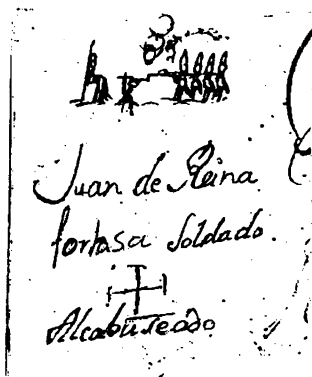 Juan de Reina
fortasa Soldado.
Alcabuseado